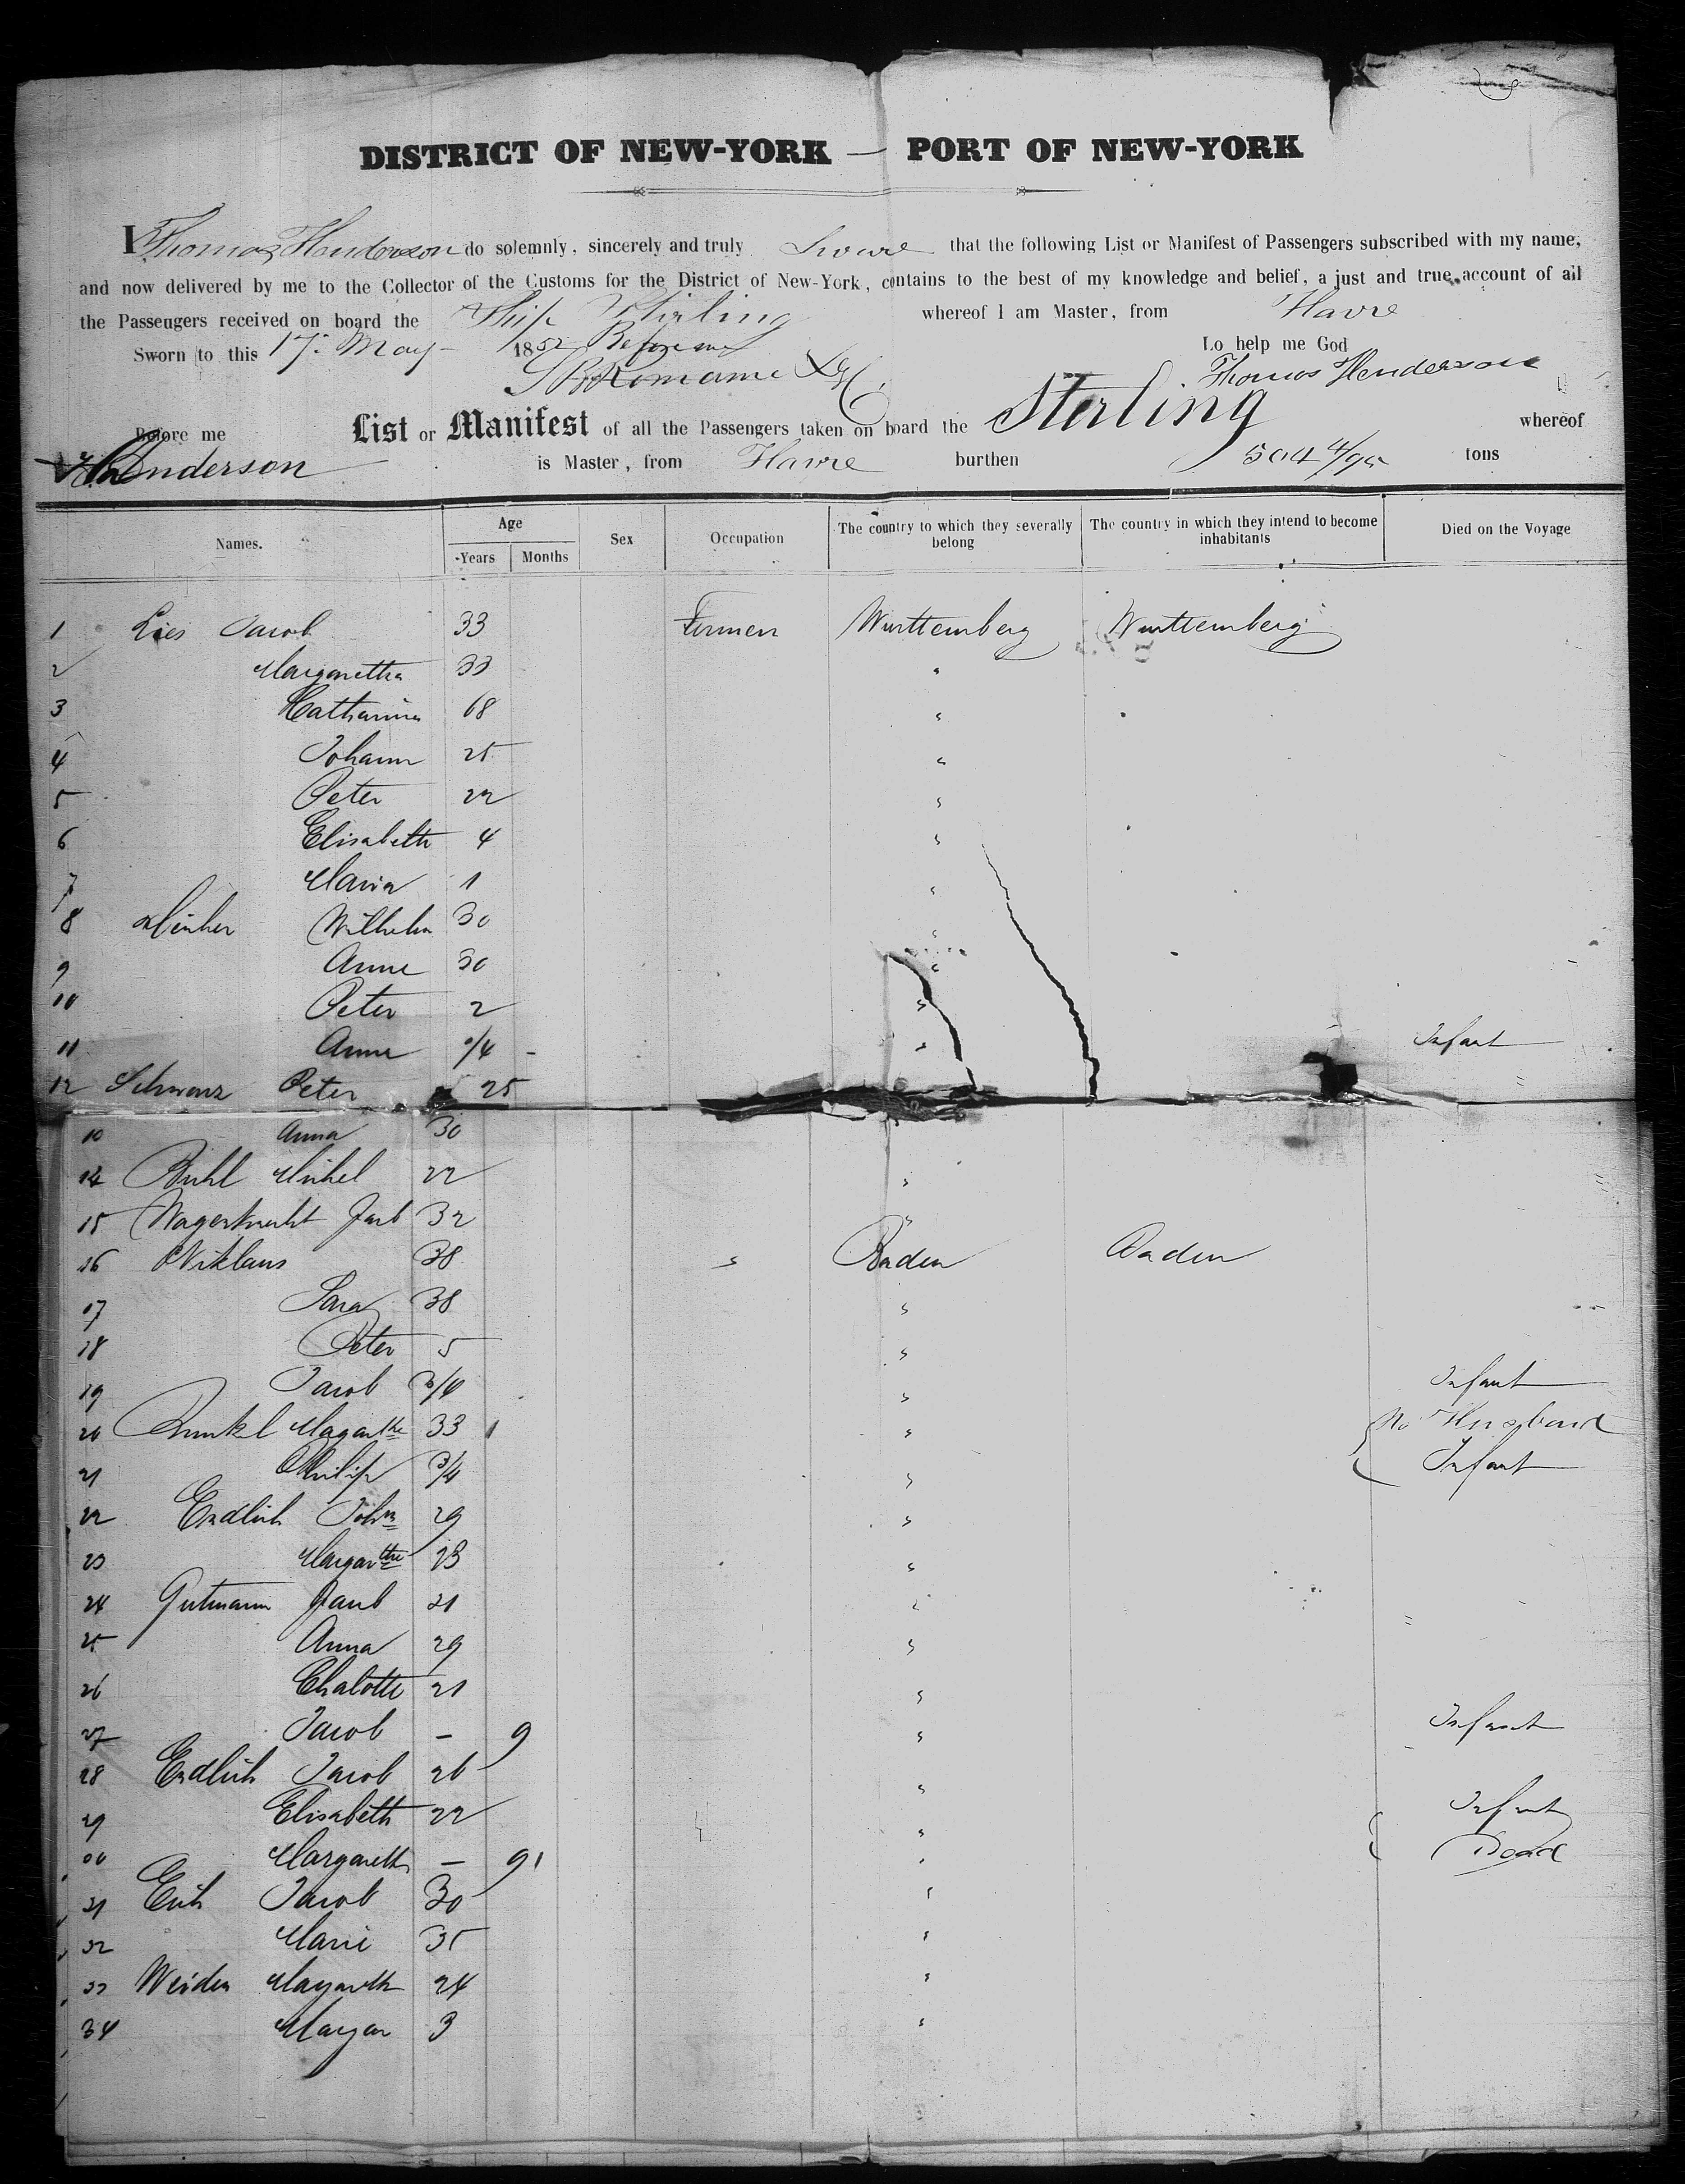 DISTRICT OF NEW-YORK — PORT OF NEW-YORK
I Thomas Henderson do solemnly, sincerely and truly Swear that the following List or Manifest of Passengers subscribed with my name,
and now delivered by me to the Collector of the Customs for the District of New-York, contains to the best of my knowledge and belief, a just and true account of all
the Passengers received on board the Ship Stirling whereof I am Master, from Havre
Sworn to this 17. May 1852 Before me Lo help me God
Thomas Henderson
Before me List or Manifest of all the Passengers taken on board the Sterling whereof
Henderson is Master, from Havre burthen 504 4/95 tons
Names. Age Years Months Sex Occupation The country to which they severally belong The country in which they intend to become inhabitants Died on the Voyage
1 Lies Jacob 33 Wurttemberg Wurttemberg
2 Margaretha 33 "
3 Catharina 68 "
4 Johann 25 "
5 Peter 22 "
6 Elisabeth 4 "
7 Maria 1 "
8 Wilhelm 30 "
9 Anne 30 "
10 Peter 2 "
11 Anna /4 - " Infant
12 Schwarz Peter 25
Anna 30
14 Buhl Michel 22 "
15 Wagenknecht Jacb 32 "
16 Niklaus 38 " Baden Baden
17 Sara 38 "
18 Peter 5 "
19 Jacob 3/4 " Infant
20 Runkel Margarthe 33 1 " No Husband
21 Philip 3/4 " Infant
22 Endlich John 29 "
23 Margarthe 23 "
24 Gutmann Jacb 21 "
25 Anna 29 "
26 Chalotte 21 "
27 Jacob - 9 " Infant
28 Endlich Jacob 26 "
29 Elisabeth 22 " Infant
30 Margareth - 9 " Dead
31 Jacob 30 "
32 Marie 35 "
33 Margareth 24 "
34 Margar 3 "